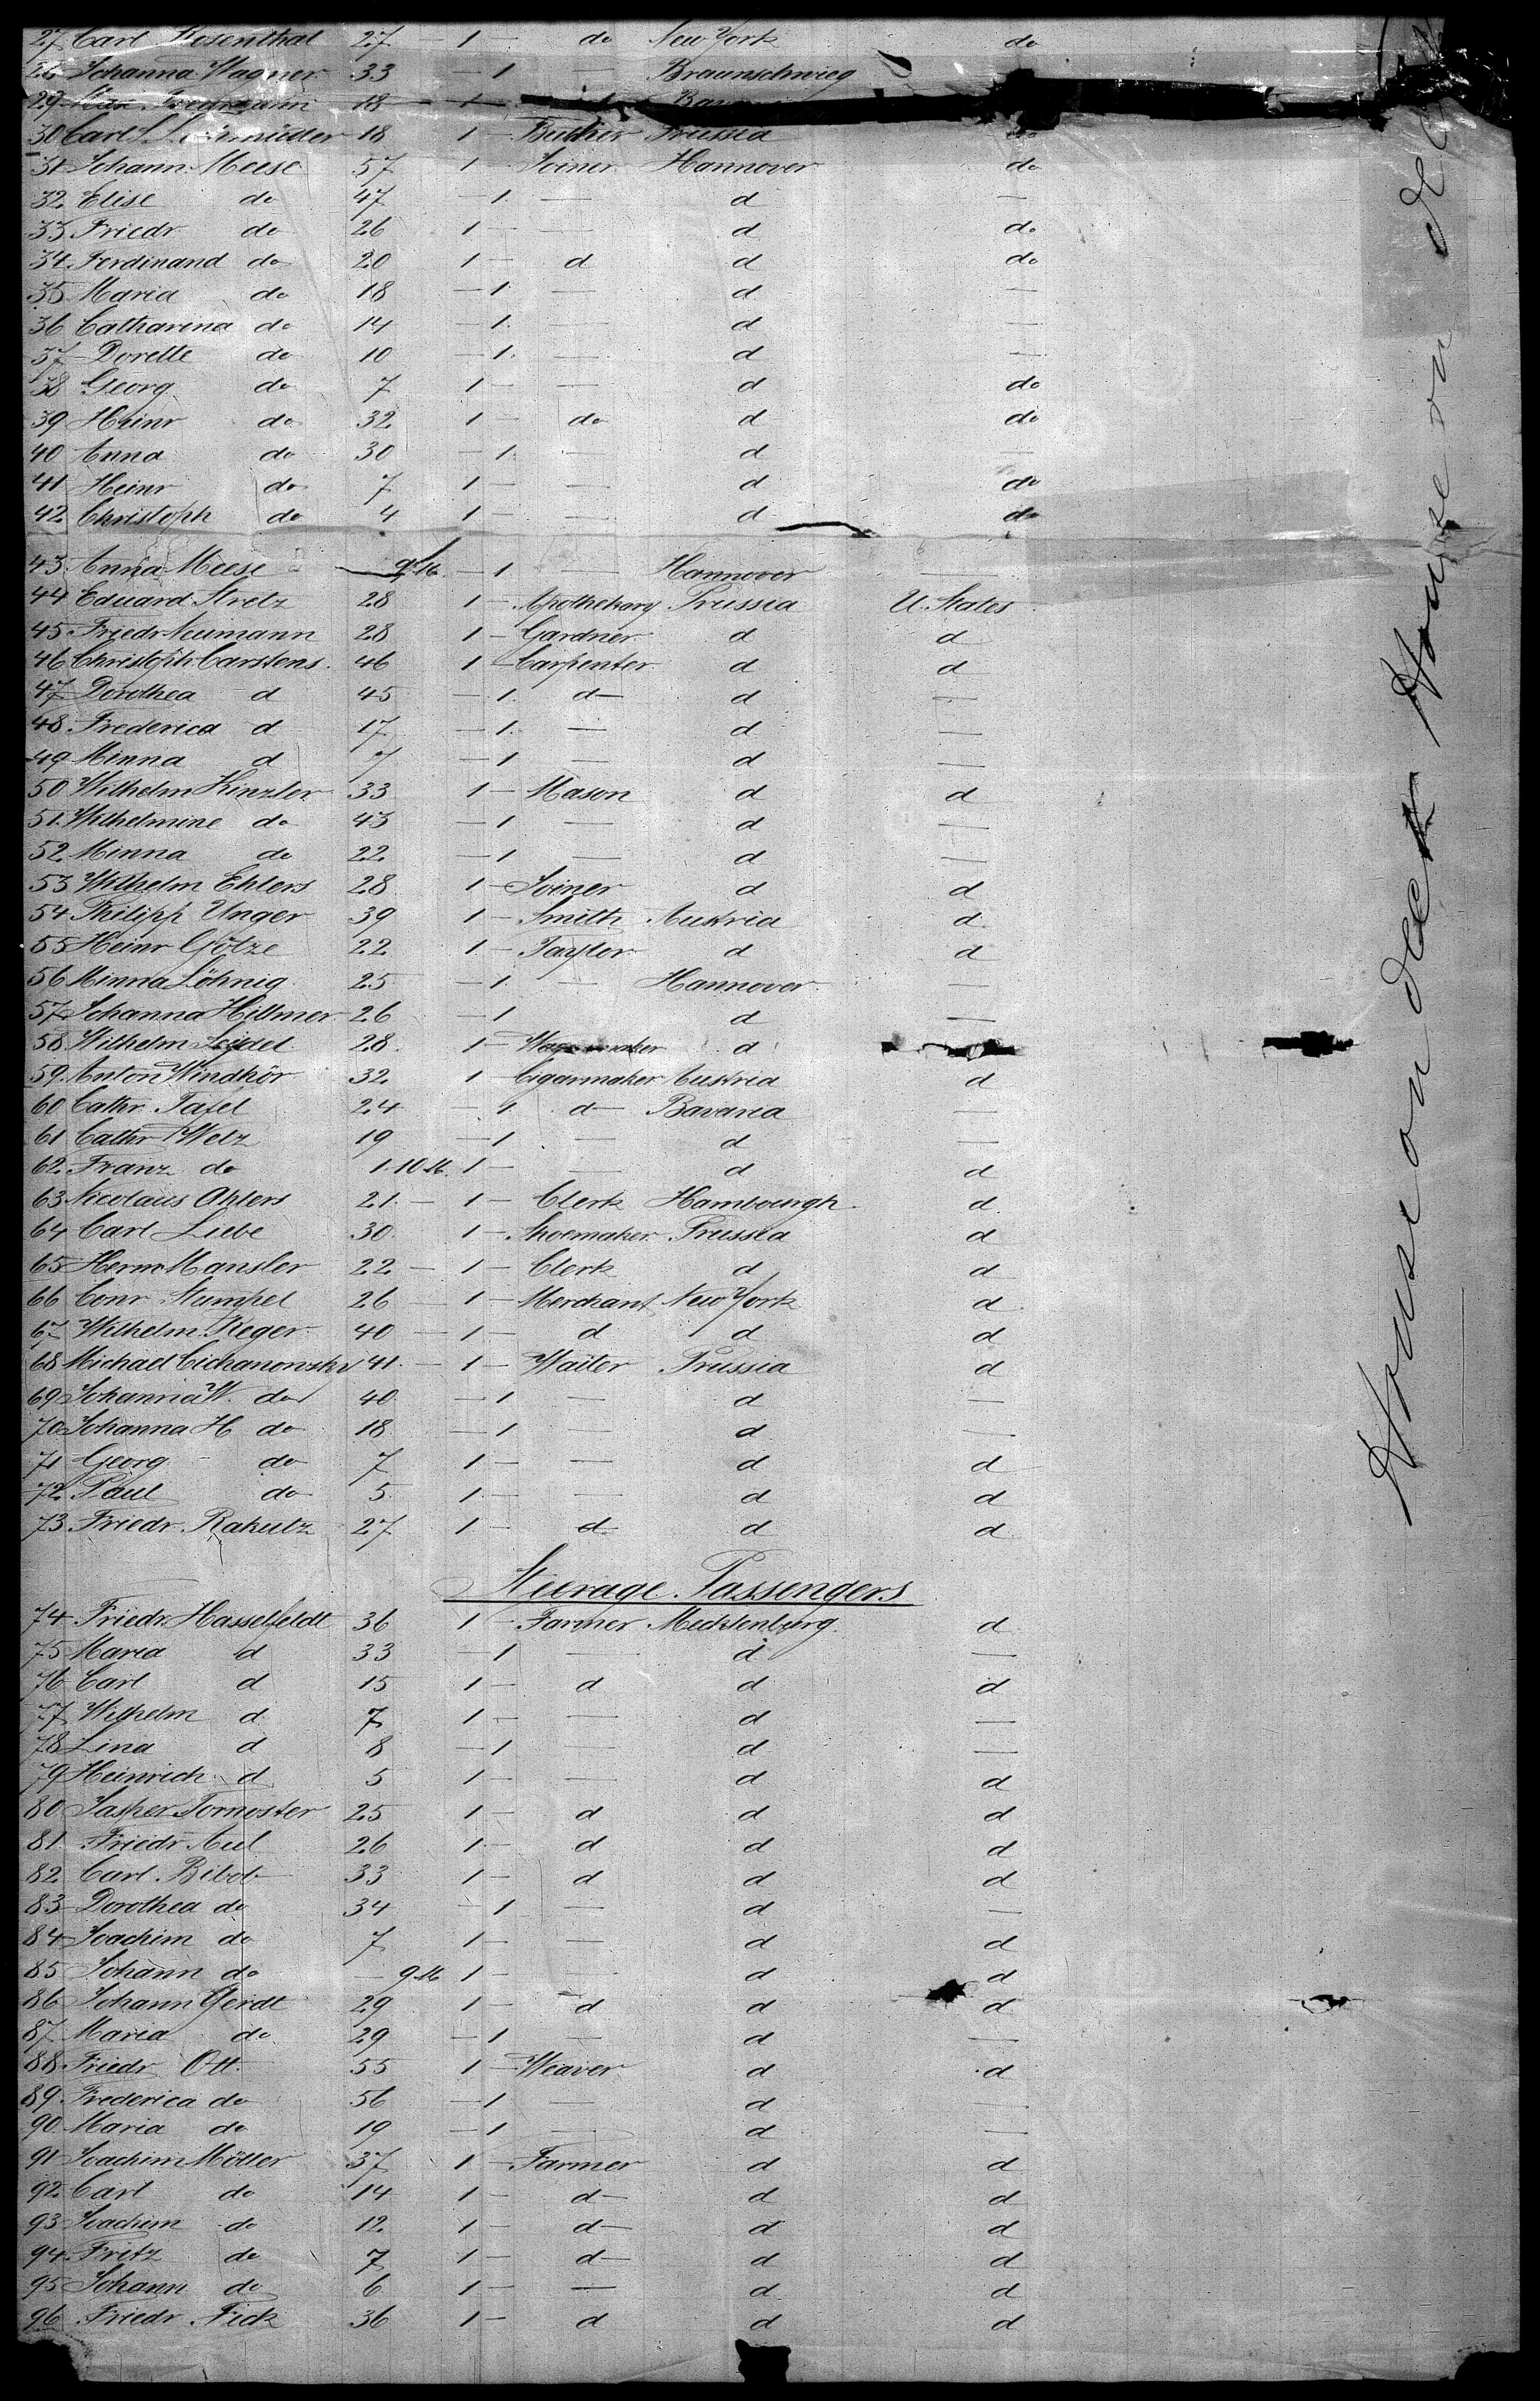 27 Carl Rosenthal 27 - 1 - do New York do
28 Johanna Wagner 33 - 1 — Braunschwieg
29 18 - 1
30 Carl 18 1 - Butcher Prussia do
31 Johann Meese 57 1 - Joiner Hannover do
32 Elise do 47 - 1 — d —
33 Friedr do 26 1 - — d do
34 Ferdinand do 20 1 - d d do
35 Maria do 18 - 1 — d —
36 Catharina do 14 - 1 — d —
37 Dorette do 10 - 1 — d —
38 Georg do 7 1 - — d do
39 Heinr do 32 1 - do d do
40 Anna do 30 - 1 — d —
41 Heinr do 7 1 - — d do
42 Christoph do 4 1 - — d do
43 Anna Meese — 9 M. - 1 — Hannover —
44 Eduard Stretz 28 1 - Apothekary Prussia U. States
45 Friedr Neumann 28 1 - Gardner d d
46 Christoph Carstens 46 1 - Carpenter d d
47 Dorothea d 45 - 1 d — d —
48 Frederica d 17 - 1 — d —
49 Minna d 7 - 1 — d —
50 Wilhelm Kinzler 33 1 - Mason d d
51 Wilhelmine do 43 - 1 — d —
52 Minna do 22 - 1 — d —
53 Wilhelm Ehlers 28 1 - Joiner d d
54 Philipp Unger 39 1 - Smith Austria d
55 Heinr Götze 22 1 - Taylor d d
56 Minna Löhnig 25 - 1 — Hannover —
57 Johanna Hillmer 26 - 1 d —
58 Wilhelm Seidel 28 1 - d
59 Anton Windhör 32 1 Cigarmaker Austria d
60 Cathr. Tafel 24 - 1 d — Bavaria —
61 Cathr Welz 19 - 1 — d —
62 Franz do 1 10 M. 1 - — d d
63 Nicolaus Ahlers 21 - 1 - Clerk Hambourgh d
64 Carl Liebe 30 1 - Shoemaker Prussia d
65 Herm Mansler 22 - 1 - Clerk d d
66 Conr Stumpel 26 - 1 - Merchant New York d
67 Wilhelm Reger 40 - 1 - d d d
68 Michael Cichanowzky 41 - 1 - Waiter Prussia d
69 Johanna W. do 40 - 1 — d —
70 Johanna H do 18 - 1 — d —
71 Georg do 7 1 - — d d
72 Paul do 5 1 - — d d
73 Friedr. Rakutz 27 1 - d d d
Steerage Passengers
74 Friedr. Hasselfeldt 36 1 - Farmer Mecklenburg d
75 Maria d 33 - 1 — d —
76 Carl d 15 1 - d d d
77 Wilhelm d 7 1 - — d —
78 Lina d 8 - 1 — d —
79 Heinrich d 5 1 - — d d
80 Jasper Tornoster 25 1 - d d d
81 Friedr Aul 26 1 - d d d
82 Carl Bibob 33 1 - d d d
83 Dorothea do 34 - 1 — d —
84 Joachim do 7 1 - — d d
85 Johann do — 9 M 1 - — d d
86 Johann Gerdt 29 1 - d d d
87 Maria do 29 - 1 — d —
88 Friedr Ott 55 1 - Weaver d d
89 Frederica do 56 - 1 — d —
90 Maria do 19 - 1 — d —
91 Joachim Möller 37 1 - Farmer d d
92 Carl do 14 1 - d — d d
93 Joachim do 12 1 - d — d d
94 Fritz do 7 1 - d — d d
95 Johann do 6 1 - — d d
96 Friedr Fick 36 1 - d d d
House on deck House on deck